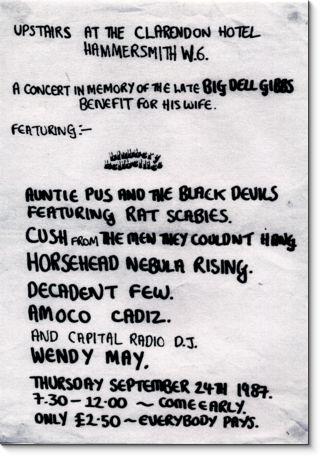 UPSTAIRS AT THE CLARENDON HOTEL
HAMMERSMITH W.6.
A CONCERT IN MEMORY OF THE LATE BIG DELL GIBBS
BENEFIT FOR HIS WIFE.
FEATURING:-
AUNTIE PUS AND THE BLACK DEVILS
FEATURING RAT SCABIES.
CUSH FROM THE MEN THEY COULDNT HANG
HORSEHEAD NEBULA RISING.
DECADENT FEW.
AMOCO CADIZ.
AND CAPITAL RADIO D.J.
WENDY MAY.
THURSDAY SEPTEMBER 24TH 1987.
7.30 - 12.00 ~ COME EARLY.
ONLY £2.50 ~ EVERYBODY PAYS.